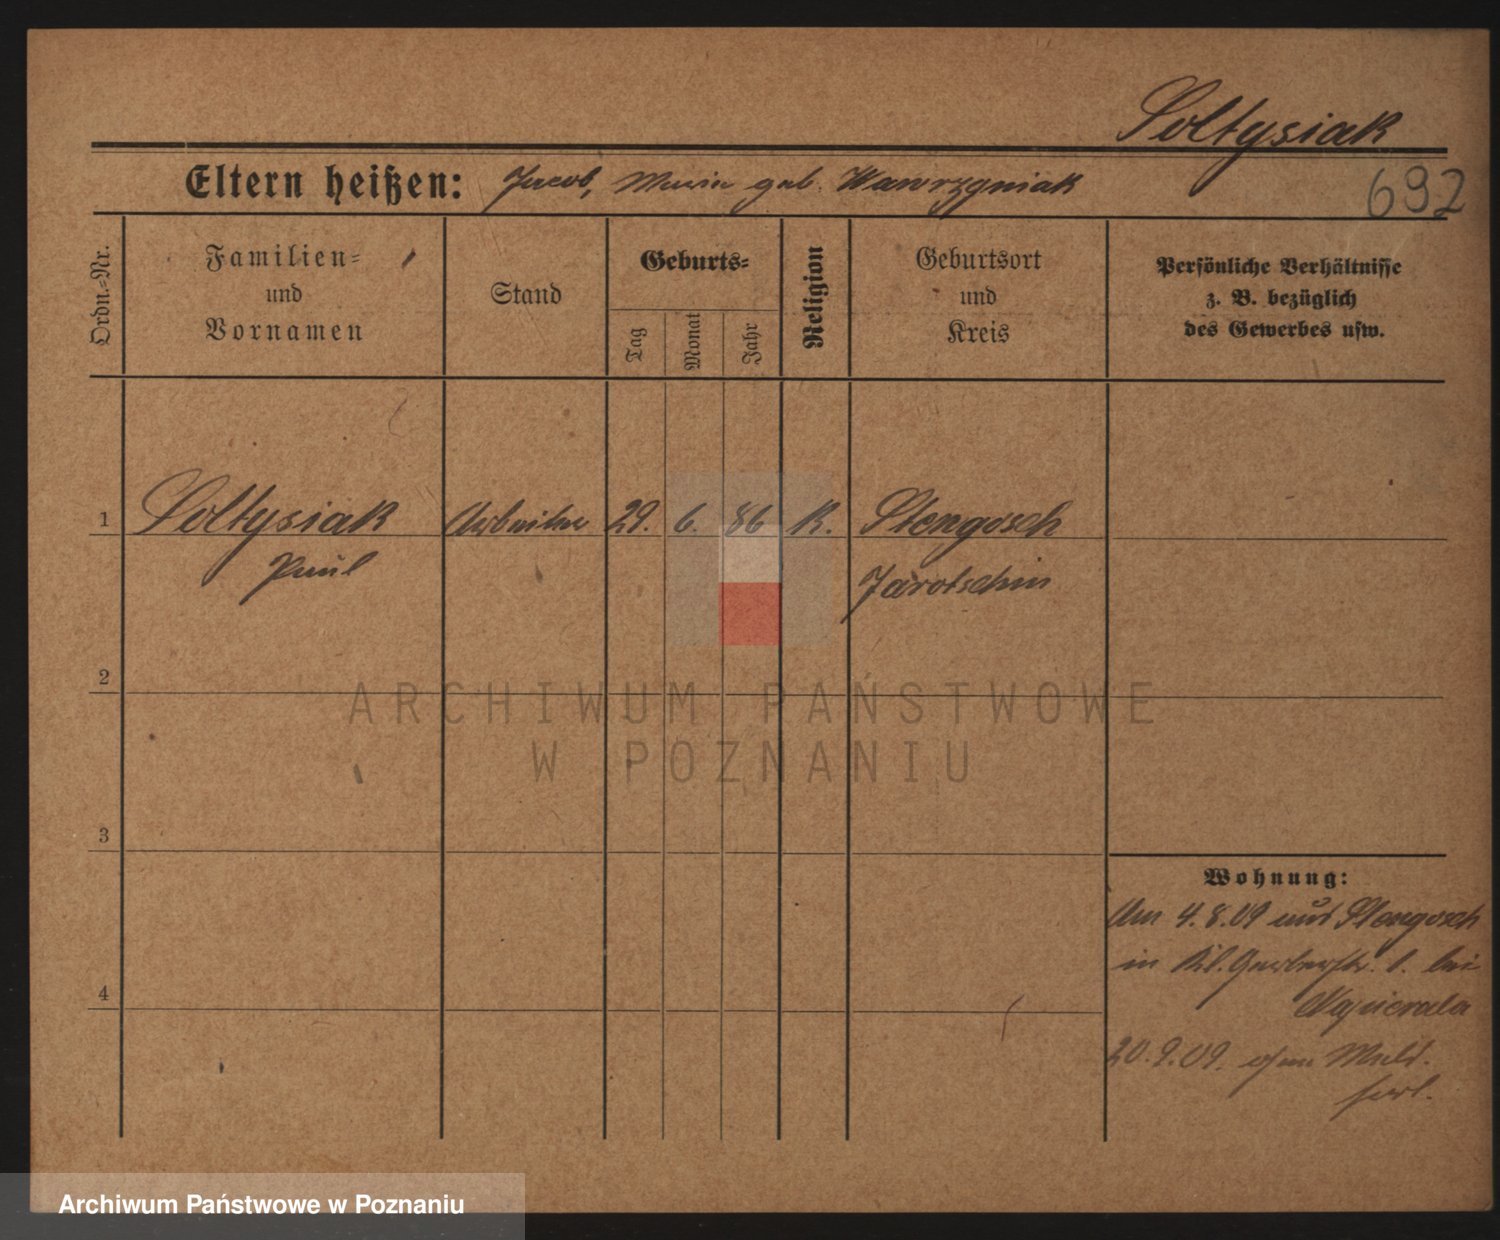 Soltysiak
Eltern heißen: Jacob, Maria geb. Wawrzyniak
692
Ordn.-Nr.
Familien-
und
Vornamen
Stand
Geburts-
Tag
Monat
Jahr
Religion
Geburtsort
und
Kreis
Persönliche Verhältnisse
z. B. bezüglich
des Gewerbes usw.
1 Soltysiak Arbeiter 29. 6. 86 K. Stengosch
Paul Jarotschin
2
ARCHIWUM PAŃSTWOWE
W POZNANIU
3
Wohnung:
Am 4.8.09 aus Stengosch
in Kl. Gerberstr. 1. bei
4
20.9.09. ohne Meld.
verl.
Archiwum Państwowe w Poznaniu